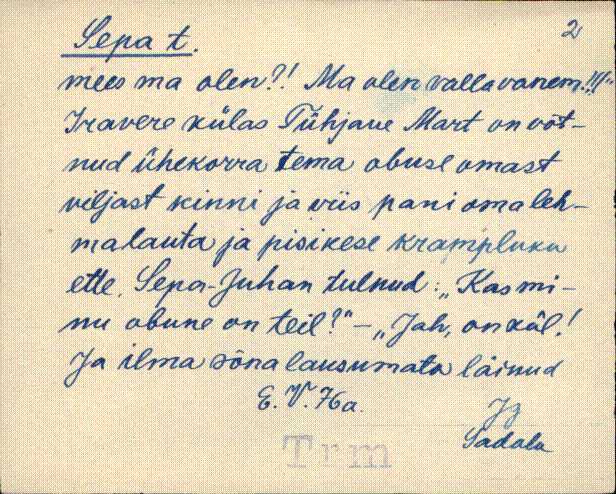 2
Sepa t.
mees ma olen?! Ma olen vallavanem!!!"
Iravere külas Tühjane Mart on võt-
nud ühekorra tema obuse omast
viljast kinni ja viis pani oma leh-
malauta ja pisikese krampluku
ette. Sepa-Juhan tulnud: „Kas mi-
nu obune on teil?" – „Jah, on kül!
Ja ilma sõna lausumata läinud
E. V. 76 a.
Jg
Sadala
Trm